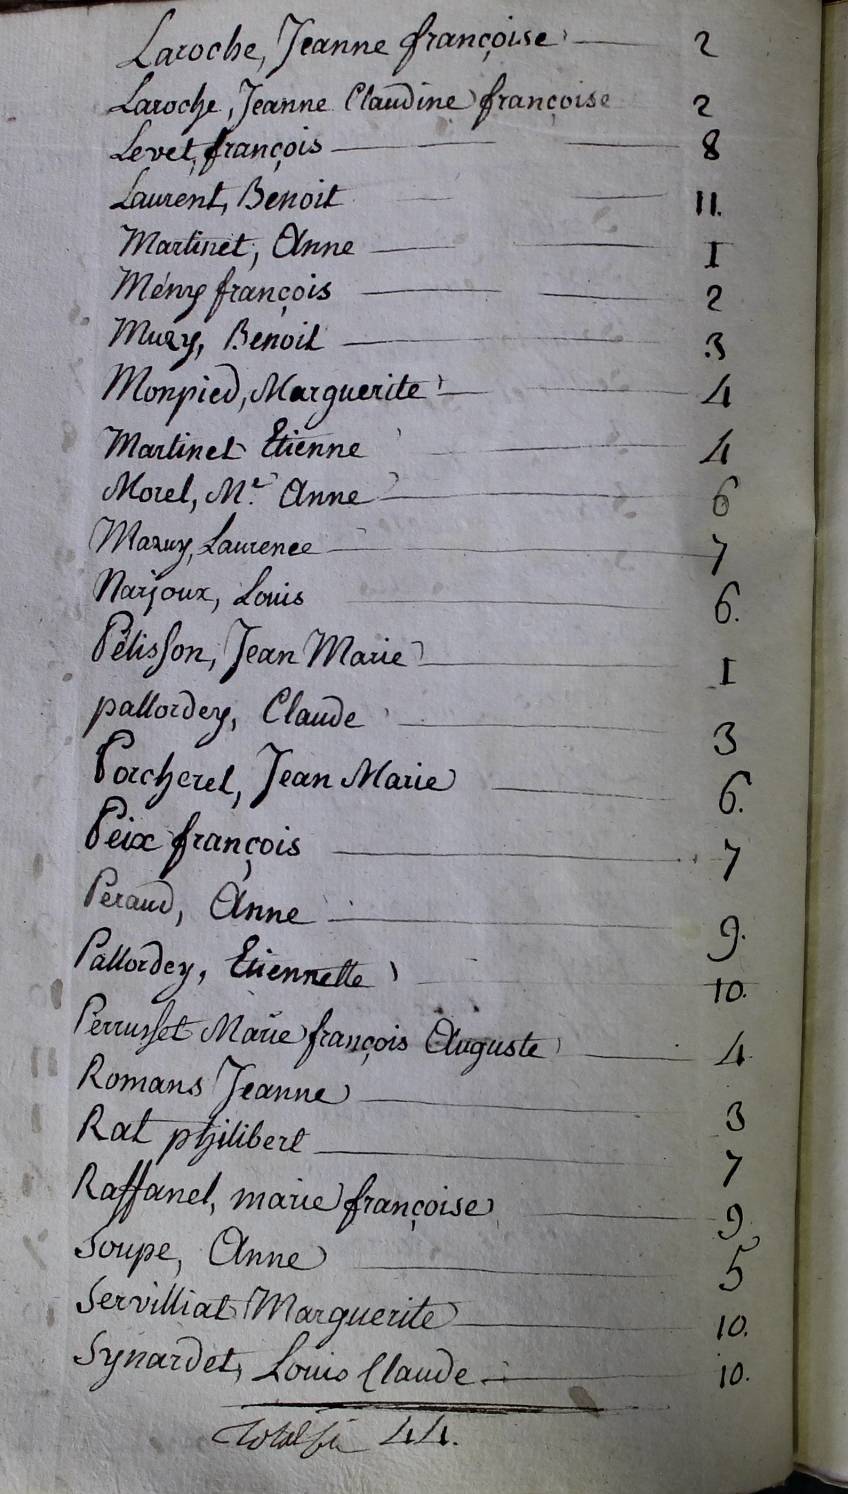 Laroche, Jeanne françoise 2
Laroche, Jeanne Claudine françoise 2
Levet, françois 8
Laurent, Benoit 11.
Martinet, Anne 1
Mény françois 2
Muzy, Benoit 3
Monpied, Marguerite 4
Martinet Etienne 4
Morel, Mie. Anne 6
Mazuy, Laurence 7
Narjoux, Louis 6.
Pélisson, Jean Marie 1
pallordey, Claude 3
Porcheret, Jean Marie 6.
Peix françois 7
Peraud, Anne 9.
Pallordey, Etiennette 10.
Perrusset Marie françois Auguste 4
Romans Jeanne 3
Rat philibert 7
Raffanel, marie françoise 9
Soupe, Anne 5
Servilliat Marguerite 10.
Synardet, Louis Claude 10.
44.